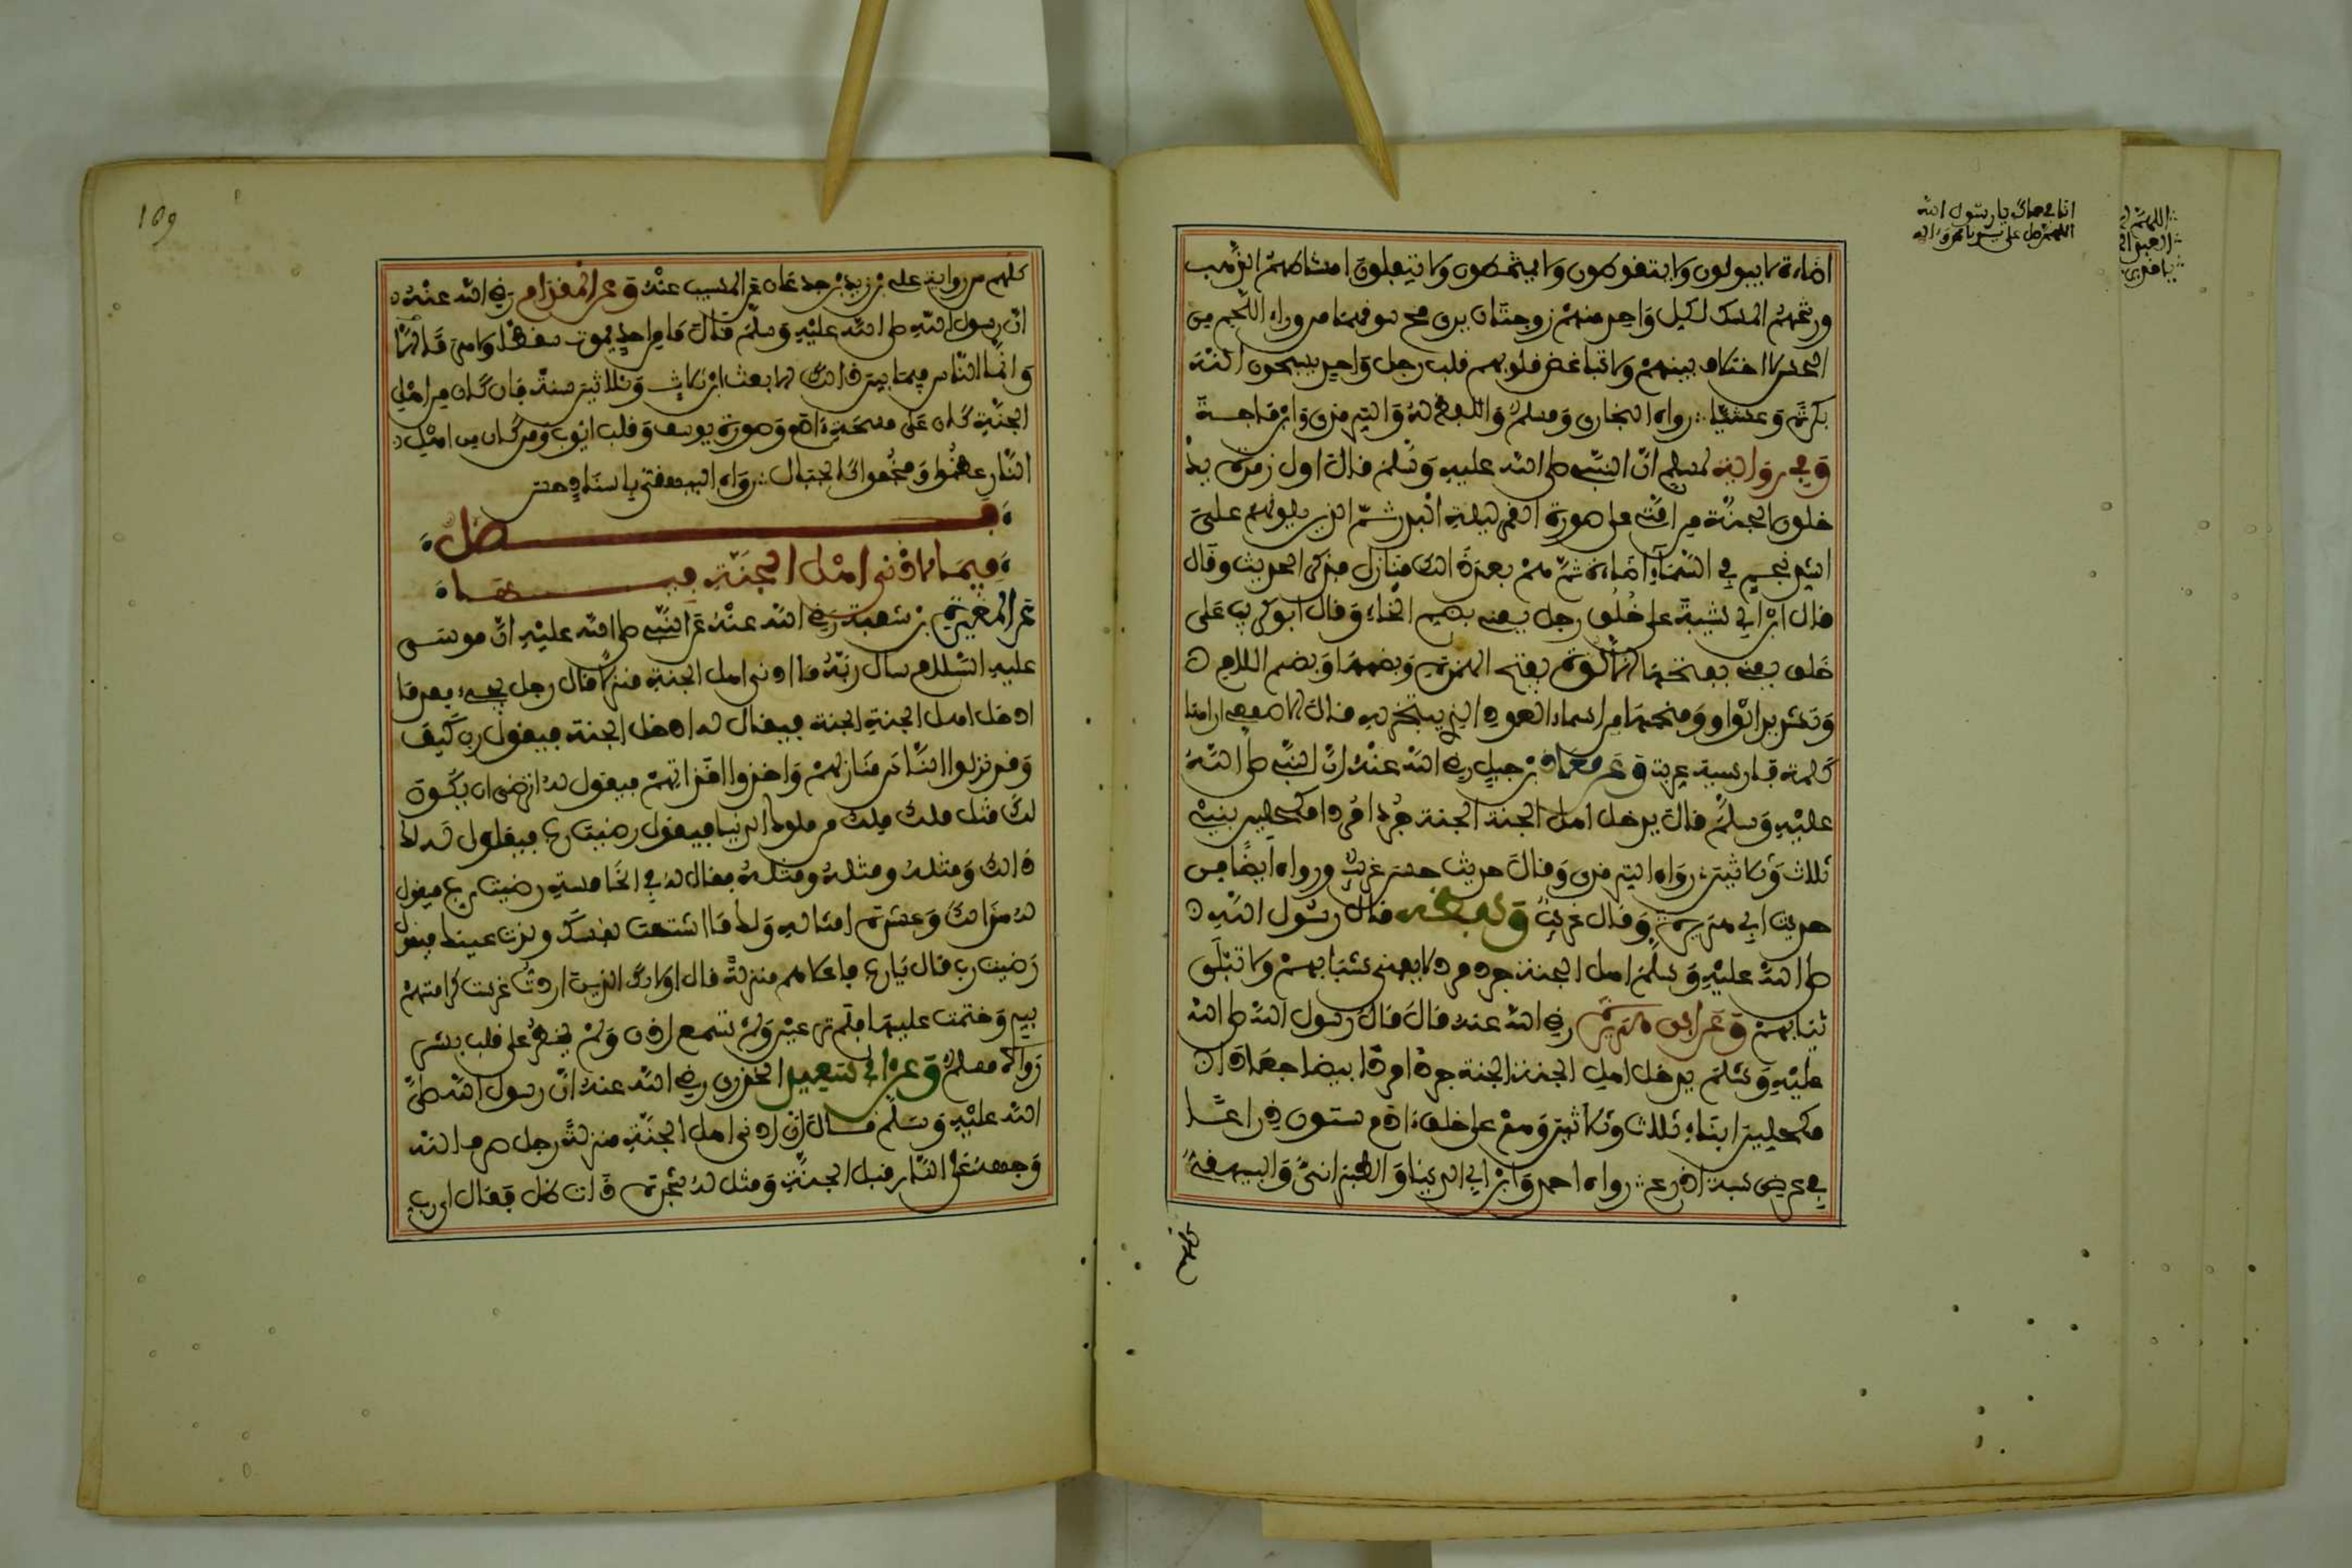 اضاءة لا يبولون ولا يتغوطون ولا يمتخطون ولا يتفلون امشاطهم الذهب
ورشحهم المسك لكل واحد منهم زوجتان يرى مخ سوقهما من وراء اللحم من
الحسن لا اختلاف بينهم ولا تباغض قلوبهم قلب رجل واحد يسبحون الله
بكرة وعشيا رواه البخاري ومسلم واللفظ له والترمذي وابن ماجة
وفي رواية لمسلم ان النبي صلى الله عليه وسلم قال اول زمرة يد
خلون الجنة من امتي على صورة القمر ليلة البدر ثم الذين يلونهم على
اشد نجم في السماء اضاءة ثم هم بعد ذلك منازل فذكر الحديث وقال
قال ابن ابي شيبة على خلق رجل يعني بضم الخاء وقال ابو كريب على
خلق يعني بفتحها الألوة بفتح الهمزة وبضمها وبضم اللام
وتشديد الواو وفتحها من اسماء العود الذي يتبخر به قال الاصمعي اراها
كلمة فارسية عربت وعن معاذ بن جبل رضي الله عنه ان النبي صلى الله
عليه وسلم قال يدخل اهل الجنة الجنة جردا مردا مكحلين بني
ثلاث وثلاثين رواه الترمذي وقال حديث حسن غريب ورواه ايضا من
حديث ابي هريرة وقال غريب ولفظه قال رسول الله
صلى الله عليه وسلم اهل الجنة جرد مرد لا يفنى شبابهم ولا تبلى
ثيابهم وعن ابي هريرة رضي الله عنه قال قال رسول الله صلى الله
عليه وسلم يدخل اهل الجنة الجنة جردا مردا بيضا جعادا
مكحلين ابناء ثلاث وثلاثين وهم على خلق ءادم ستون ذراعا
في عرض سبعة اذرع رواه احمد وابن ابي الدنيا والطبراني والبيهقي
انا في حماك يا رسول الله
اللهم صل على
اللهم
كلهم من رواية علي بن زيد بن جدعان عن ابن المسيب عنه وعن المقدام رضي الله عنه
ان رسول الله صلى الله عليه وسلم قال ما من احد يموت سقطا ولا هرما
وانما الناس فيما بين ذالك الا بعث ابن ثلاث وثلاثين سنة فان كان من اهل
الجنة كان على مسحة ءادم وصورة يوسف وقلب ايوب ومن كان من اهل
النار عظموا وفخموا كالجبال رواه البيهقي باسناد حسن
فصل
فيما لادنى اهل الجنة فيها
عن المغيرة بن شعبة رضي الله عنه عن النبي صلى الله عليه ان موسى
عليه السلام سأل ربه ما ادنى اهل الجنة منزلا قال رجل يجيء بعد ما
ادخل اهل الجنة الجنة فيقال له ادخل الجنة فيقول رب كيف
وقد نزلوا الناس منازلهم واخذوا اخذاتهم فيقول له اترضى ان يكون
لك مثل ملك ملك من ملوك الدنيا فيقول رضيت رب فيقول له لك
ذالك ومثله ومثله ومثله فقال له في الخامسة رضيت رب فيقول
له هذا لك وعشرة امثاله ولك ما اشتهت نفسك ولذت عينك فيقول
رضيت رب قال يارب فاعلاهم منزلة قال اولائك الذين اردت غرست كرامتهم
بيدي وختمت عليها فلم تر عين ولم تسمع اذن ولم يخطر على قلب بشر
رواه مسلم وعن ابي سعيد الخدري رضي الله عنه ان رسول الله صلى
الله عليه وسلم قال ان ادنى اهل الجنة منزلة رجل صرف الله
وجهه عن النار قبل الجنة ومثل له شجرة ذات ظل فقال اي رب
109